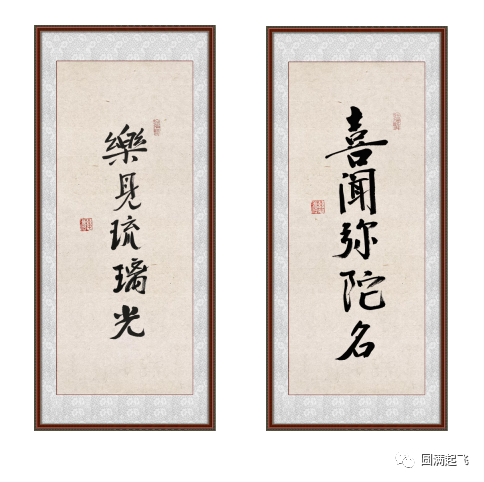 喜闻弥陀名
樂見琉璃光
圆满起飞